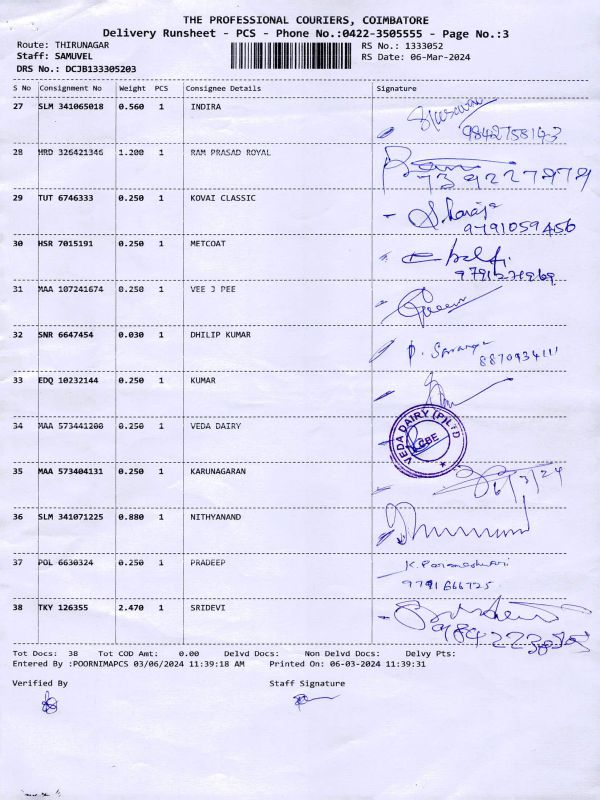 THE PROFESSIONAL COURIERS, COIMBATORE
Delivery Runsheet - PCS - Phone No.:0422-3505555 - Page No.:3
Route: THIRUNAGAR RS No.: 1333052
Staff: SAMUVEL RS Date: 06-Mar-2024
DRS No.: DCJB133305203
S No Consignment No Weight PCS Consignee Details Signature
27 SLM 341065018 0.560 1 INDIRA
9842758143
28 HRD 326421346 1.200 1 RAM PRASAD ROYAL
7392277879
29 TUT 6746333 0.250 1 KOVAI CLASSIC
9791059456
30 HSR 7015191 0.250 1 METCOAT
31 MAA 107241674 0.250 1 VEE J PEE
32 SNR 6647454 0.030 1 DHILIP KUMAR
8870934111
33 EDQ 10232144 0.250 1 KUMAR
34 MAA 573441200 0.250 1 VEDA DAIRY
VEDA DAIRY (P) LTD
CBE
35 MAA 573404131 0.250 1 KARUNAGARAN
6/3/24
36 SLM 341071225 0.880 1 NITHYANAND
37 POL 6630324 0.250 1 PRADEEP
K. Parameshwari
9791666725
38 TKY 126355 2.470 1 SRIDEVI
Tot Docs: 38 Tot COD Amt: 0.00 Delvd Docs: Non Delvd Docs: Delvy Pts:
Entered By :POORNIMAPCS 03/06/2024 11:39:18 AM Printed On: 06-03-2024 11:39:31
Verified By Staff Signature